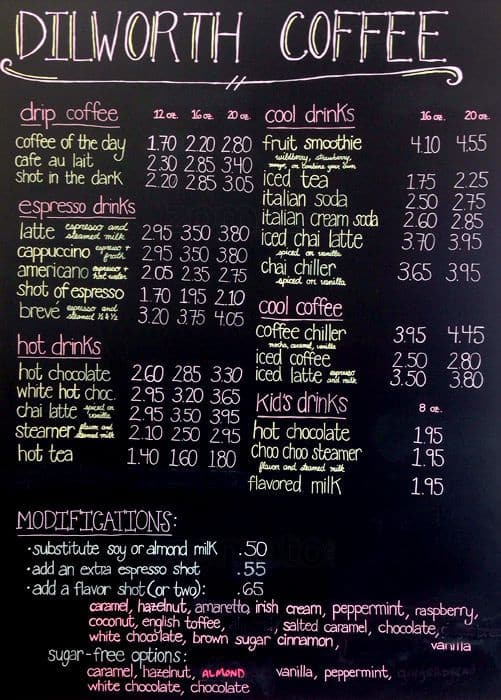 DILWORTH COFFEE
drip coffee 12 oz. 16 oz. 20 oz.
coffee of the day 1.70 2.20 2.80
cafe au lait 2.30 2.85 3.40
shot in the dark 2.20 2.85 3.05
espresso drinks
latte espresso and steamed milk 2.95 3.50 3.80
cappuccino espresso + froth 2.95 3.50 3.80
americano espresso + hot water 2.05 2.35 2.75
shot of espresso 1.70 1.95 2.10
breve espresso and steamed ½ & ½ 3.20 3.75 4.05
hot drinks
hot chocolate 2.60 2.85 3.30
white hot choc. 2.95 3.20 3.65
chai latte spiced or vanilla 2.95 3.50 3.95
steamer flavor and steamed milk 2.10 2.50 2.95
hot tea 1.40 1.60 1.80
cool drinks 16 oz. 20 oz.
fruit smoothie 4.10 4.55
wildberry, strawberry,
mango, or combine your own
iced tea 1.75 2.25
italian soda 2.50 2.75
italian cream soda 2.60 2.85
iced chai latte 3.70 3.95
spiced or vanilla
chai chiller 3.65 3.95
spiced or vanilla
cool coffee
coffee chiller 3.95 4.45
mocha, caramel, vanilla
iced coffee 2.50 2.80
iced latte espresso and milk 3.50 3.80
kid's drinks 8 oz.
hot chocolate 1.95
choo choo steamer 1.95
flavor and steamed milk
flavored milk 1.95
MODIFICATIONS:
• substitute soy or almond milk .50
• add an extra espresso shot .55
• add a flavor shot (or two): .65
caramel, hazelnut, amaretto, irish cream, peppermint, raspberry,
coconut, english toffee, salted caramel, chocolate,
white chocolate, brown sugar cinnamon, vanilla
sugar-free options:
caramel, hazelnut, ALMOND vanilla, peppermint,
white chocolate, chocolate